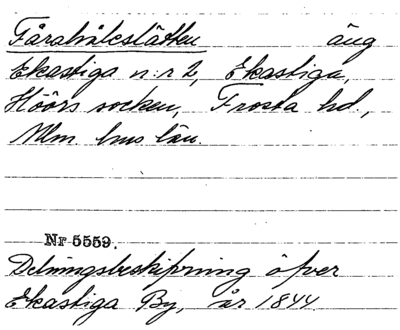 Fårahålsslätten äng
Ekastiga n:r 2, Ekastiga,
Höörs socken, Frosta hd.,
Mlm. hus län.
Nr 5559.
Delningsbeskifvning öfver
Ekastiga By, år 1844.